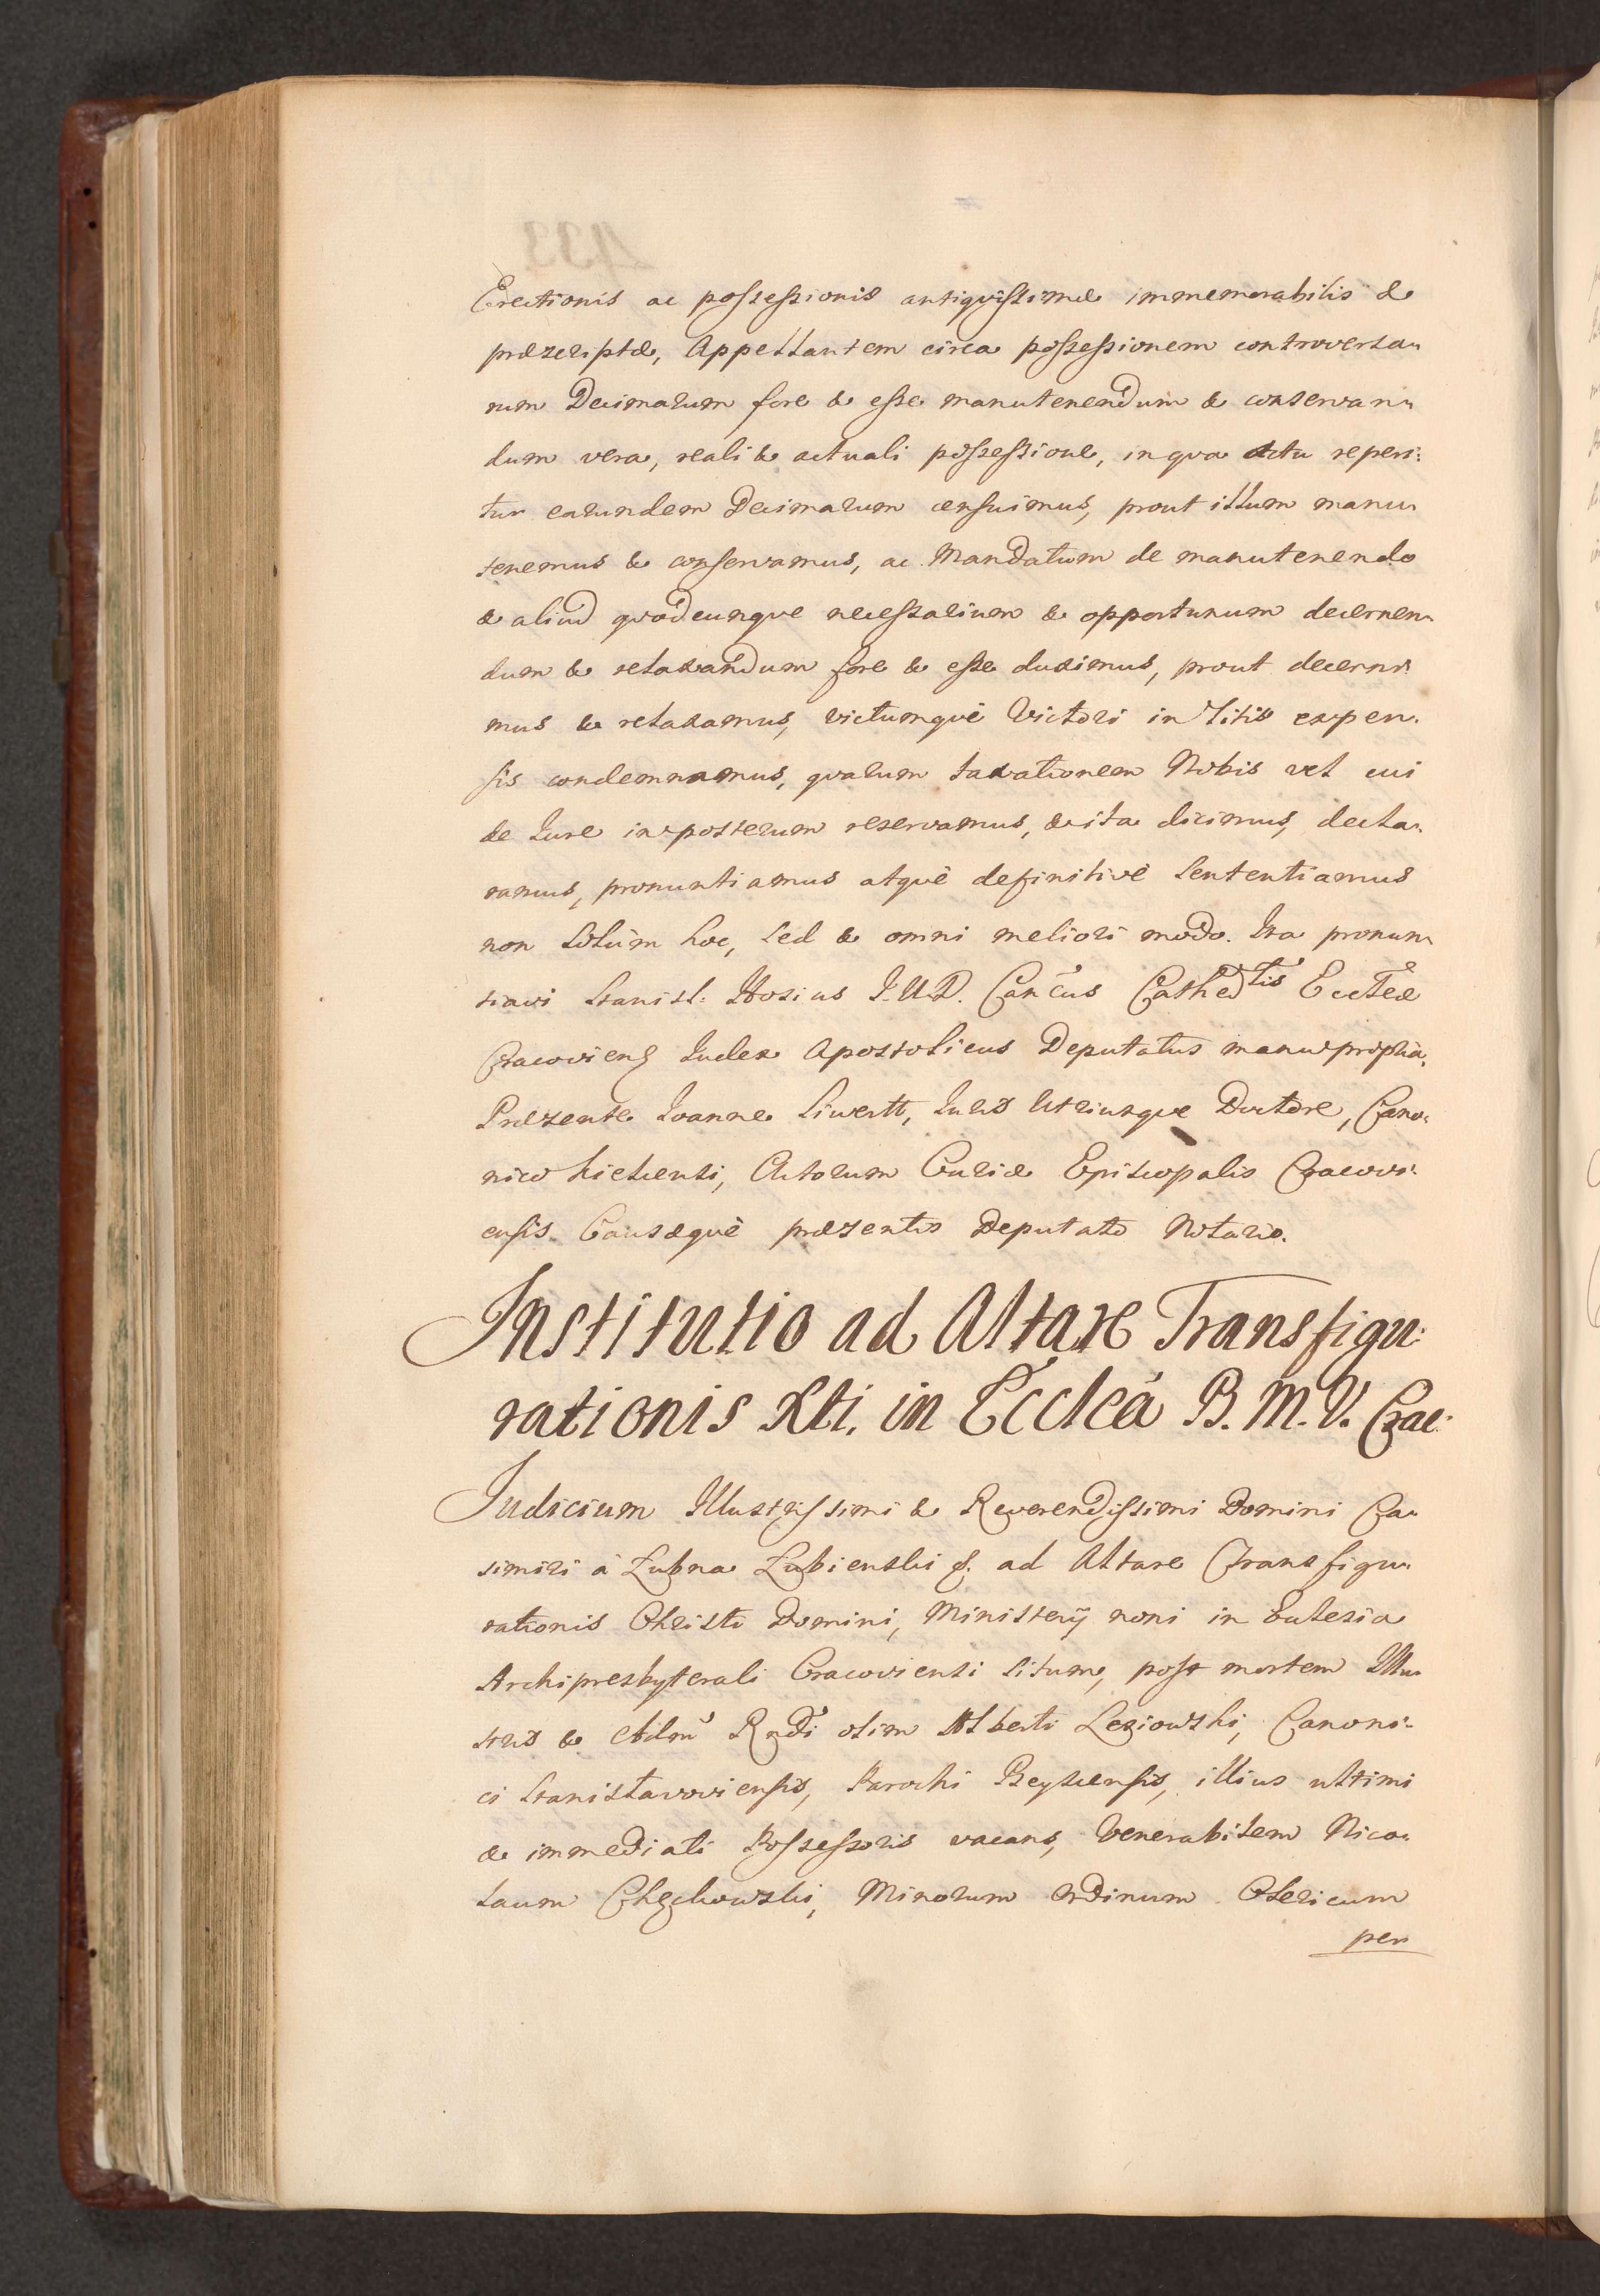 Erectionis ac possessionis antiquissimæ immemorabilis &
præscriptæ, Appellantem circa possessionem controversa-
rum Decimarum fore & esse manutenendum & conservan-
dum vera, reali & actuali possessione, in qva actu reperi-
tur earundem Decimarum censuimus, prout illum manu-
tenemus & conservamus, ac Mandatum de manutenendo
& aliud qvodcunqve necessarium & opportunum decernen-
dum & relaxandum fore & esse duximus, prout decerni-
mus & relaxamus, victumqvè Victori in litis expen-
sis condemnamus, qvarum taxationem Nobis vel cui
de Iure in posterum reservamus, & ita dicimus, decla-
ramus, pronuntiamus atqvè definitivè sententiamus
non solùm hoc, sed & omni meliori modo. Ita pronun-
tiavi Stanisl: Hosius J.U.D. Cancus Cathedlis Ecclæ
Cracovien Iudex Apostolicus Deputatus manu propria.
Præsente Ioanne Siwertt, Iuris Utriusqve Doctore, Cano-
nico Kielcensi, Actorum Curiæ Episcopalis Cracovi-
ensis Causæqvè præsentis Deputato Notario.
Institutio ad Altare Transfigu-
rationis Xti. in Eccleâ B. M. V. Crac:
Iudicium Illustrissimi & Reverendissimi Domini Ca-
simiri à Łubna Łubienski &. ad Altare Transfigu-
rationis Christi Domini, Ministerij noni in Ecclesia
Archipresbyterali Cracoviensi situm, post mortem Illu-
stris & Adm Rndi olim Alberti Leziowski, Canoni-
ci Stanislavoviensis, Parochi Beyscensis, illius ultimi
& immediati Possessoris vacans, Venerabilem Nico-
laum Chęchowski, Minorum Ordinum Clericum
per